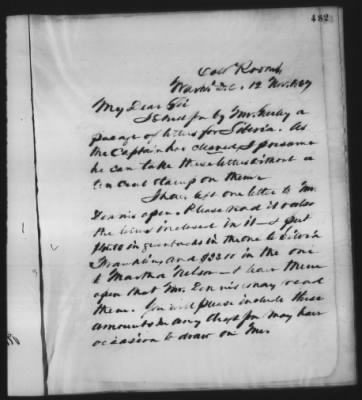 482
Col. Rooms,
Wash. D.C. 12 Nov.
My Dear Sir
I send you by Mr. a
package of letters for Liberia. As
the Captain has cleared I presume
he can take these letters without a
ten cent stamp on them.
I have left one letter to Mr.
Dennis open. Please read it under
the inclosed in it — I put
in greenbacks in the one to
Franklin, and in the one
to Martha Nelson — I leave them
open that Mr. Dennis may read
them. You will please include these
amounts in any you may have
occasion to draw on me.